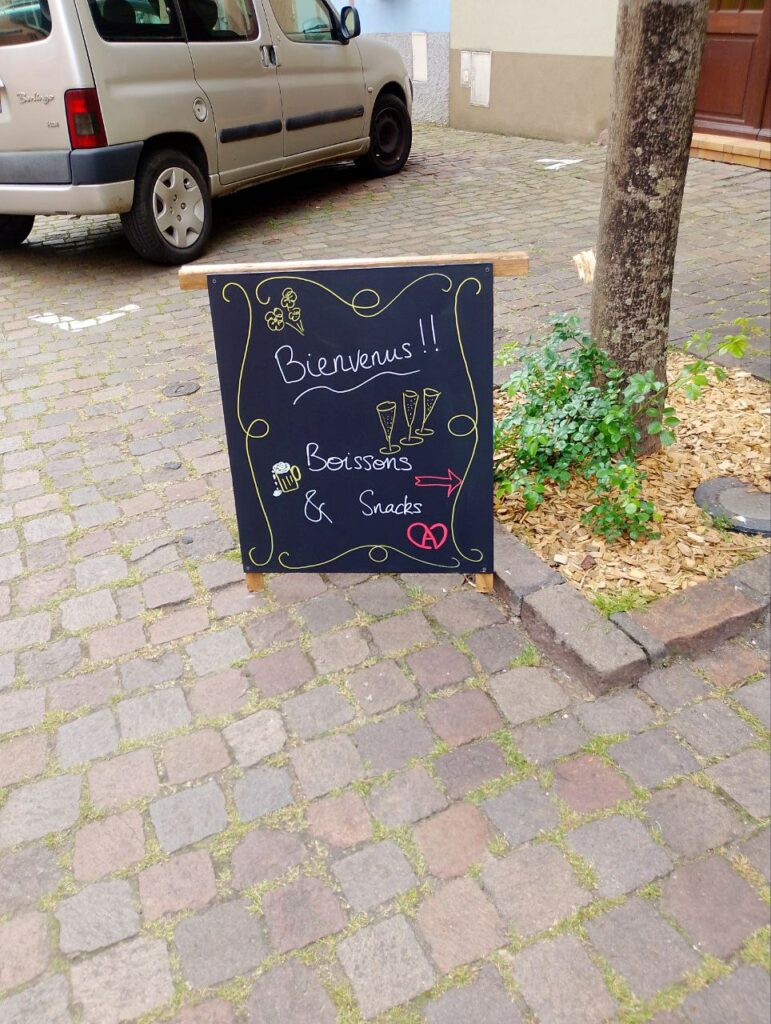 Berlingo
Bienvenus !!
Boissons
& Snacks
A